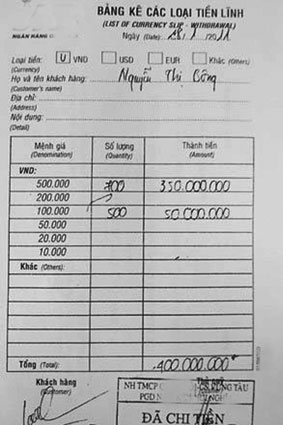 BẢNG KÊ CÁC LOẠI TIỀN LĨNH
(LIST OF CURRENCY SLIP - WITHDRAWAL)
NGÂN HÀNG
Ngày (Date)
Loại tiền: VND USD EUR Khác (Others)
(Currency)
Họ và tên khách hàng: Nguyễn Thị Công
(Customer's name)
Địa chỉ:
(Address)
Nội dung:
(Detail)
Mệnh giá Số lượng Thành tiền
(Denomination) (Quantity) (Amount)
VND:
500.000 700 350.000.000
200.000
100.000 500 50.000.000
50.000
20.000
10.000
Khác (Others):
Tổng (Total): 400.000.000
Khách hàng
(Customer)
NH TMCP VŨNG TÀU
PGD
ĐÃ CHI TIỀN